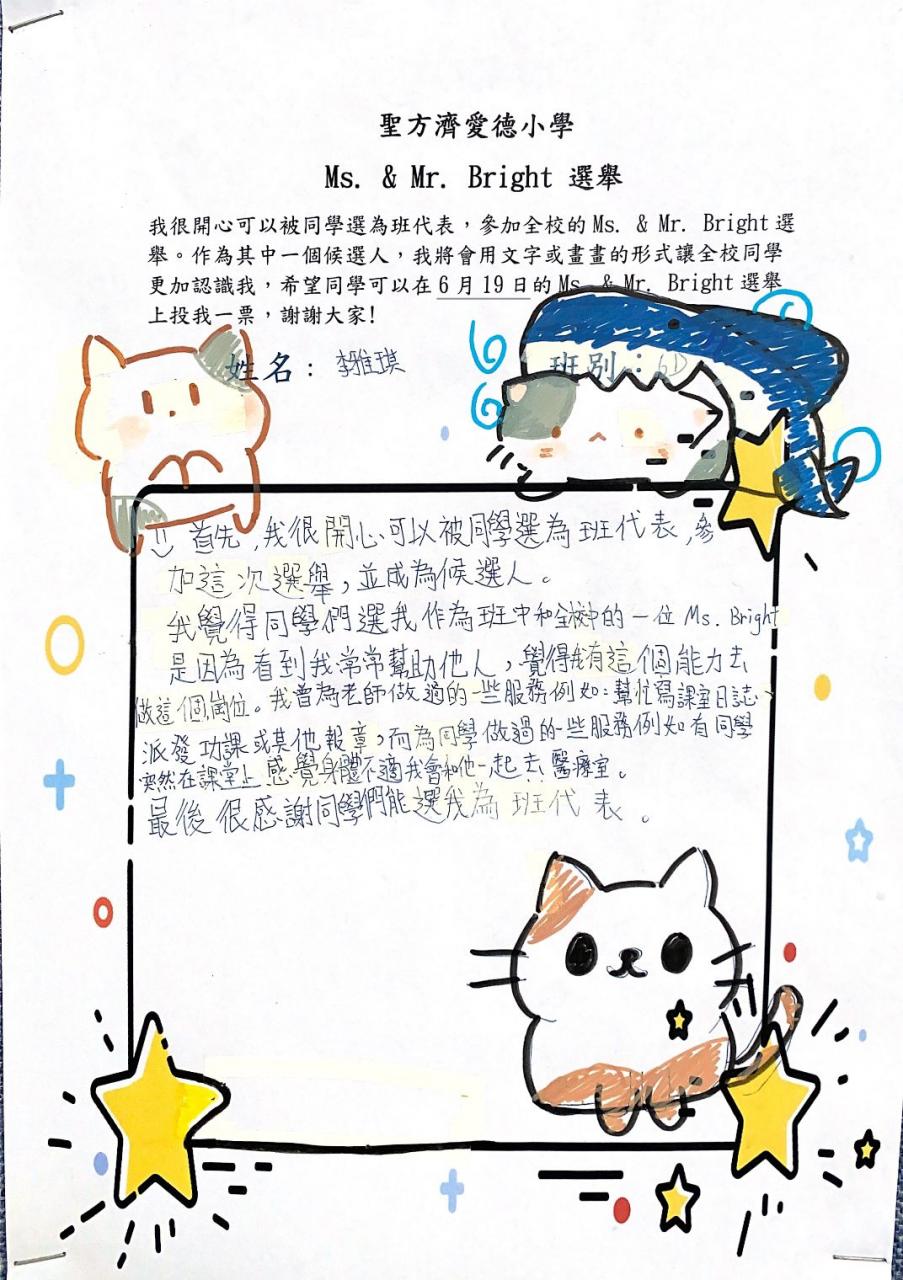 聖方濟愛德小學
Ms. & Mr. Bright 選舉
我很開心可以被同學選為班代表，參加全校的 Ms. & Mr. Bright 選
舉。作為其中一個候選人，我將會用文字或畫畫的形式讓全校同學
更加認識我，希望同學可以在 6 月 19 日的 Ms. & Mr. Bright 選舉
上投我一票，謝謝大家!
姓名：李雅琪 班別：6D
首先,我很開心可以被同學選為班代表,參
加這次選舉,並成為候選人。
我覺得同學們選我作為班中和全校中的一位 Ms. Bright
是因為看到我常常幫助他人，覺得我有這個能力去
做這個崗位。我曾為老師做過的一些服務例如：幫忙寫課室日誌、
派發功課或其他報章，而為同學做過的一些服務例如有同學
突然在課堂上感覺身體不適我會和他一起去醫療室。
最後很感謝同學們能選我為班代表。